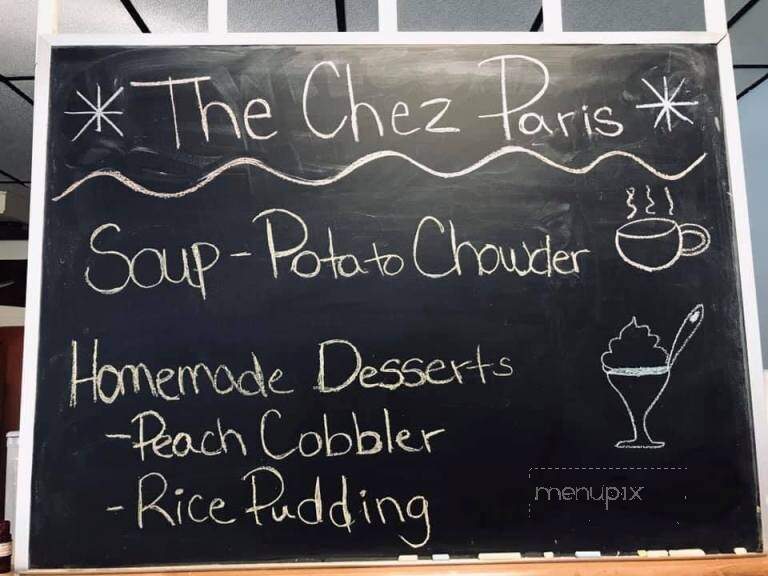 The Chez Paris
Soup - Potato Chowder
Homemade Desserts
- Peach Cobbler
- Rice Pudding
menupix